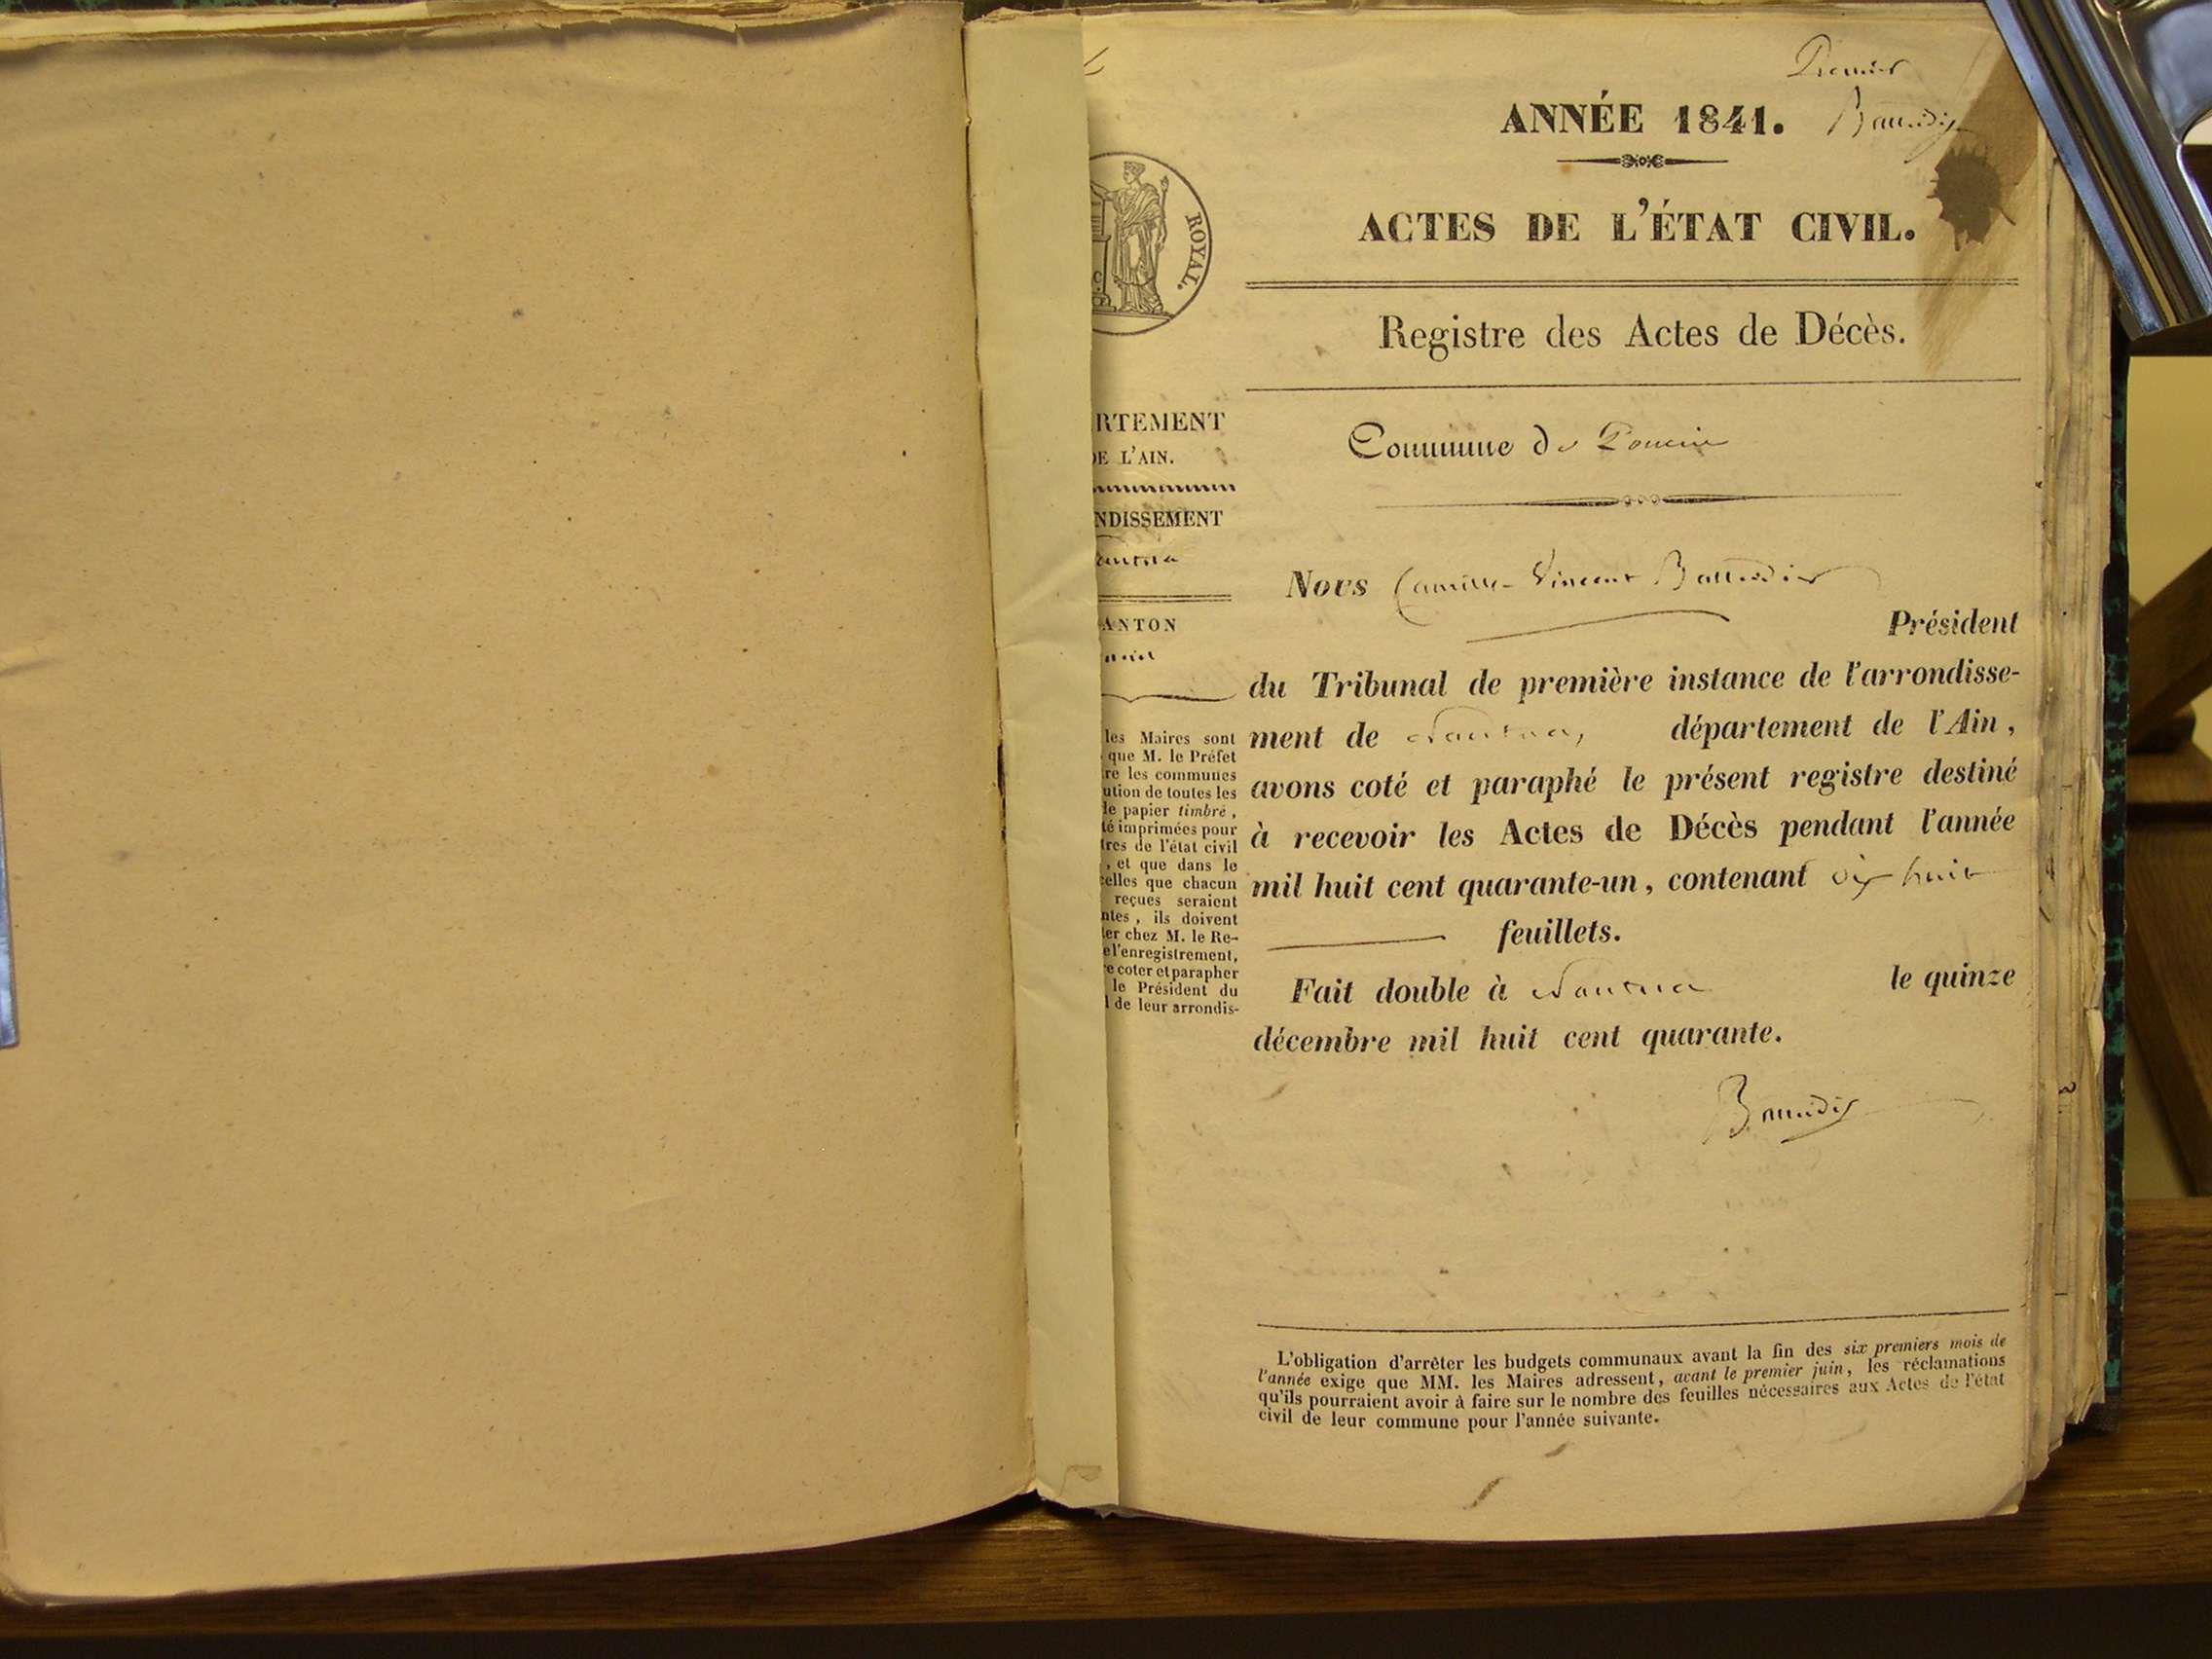 Premier
ANNÉE 1841.
ROYAL.
ACTES DE L'ÉTAT CIVIL.
Registre des Actes de Décès.
RTEMENT
DE L'AIN.
NDISSEMENT
antua
ANTON
les Maires sont
que M. le Préfet
re les communes
ution de toutes les
de papier timbré,
té imprimées pour
tres de l'état civil
, et que dans le
celles que chacun
reçues seraient
ntes, ils doivent
ter chez M. le Re-
e l'enregistrement,
e coter et parapher
le Président du
l de leur arrondis-
Commune de Poncin
Nous Camille Vincent
Président
du Tribunal de première instance de l'arrondisse-
ment de Nantua, département de l'Ain,
avons coté et paraphé le présent registre destiné
à recevoir les Actes de Décès pendant l'année
mil huit cent quarante-un, contenant dix huit
feuillets.
Fait double à Nantua le quinze
décembre mil huit cent quarante.
L'obligation d'arrêter les budgets communaux avant la fin des six premiers mois de
l'année exige que MM. les Maires adressent, avant le premier juin, les réclamations
qu'ils pourraient avoir à faire sur le nombre des feuilles nécessaires aux Actes de l'état
civil de leur commune pour l'année suivante.